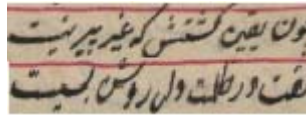 ون یقین گشتش که غیر پیر نیست
گفت در ظلمت دل روشن بسیست